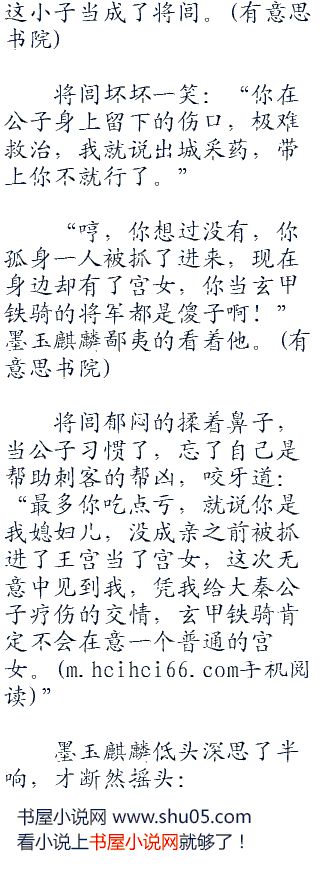 这小子当成了将闾。(有意思
书院)
将闾坏坏一笑：“你在
公子身上留下的伤口，极难
救治，我就说出城采药，带
上你不就行了。”
“哼，你想过没有，你
孤身一人被抓了进来，现在
身边却有了宫女，你当玄甲
铁骑的将军都是傻子啊！”
墨玉麒麟鄙夷的看着他。(有
意思书院)
将闾郁闷的揉着鼻子，
当公子习惯了，忘了自己是
帮助刺客的帮凶，咬牙道：
“最多你吃点亏，就说你是
我媳妇儿，没成亲之前被抓
进了王宫当了宫女，这次无
意中见到我，凭我给大秦公
子疗伤的交情，玄甲铁骑肯
定不会在意一个普通的宫
女。(m.hcihci66.com手机阅
读)”
墨玉麒麟低头深思了半
响，才断然摇头：
书屋小说网 www.shu05.com
看小说上书屋小说网就够了！